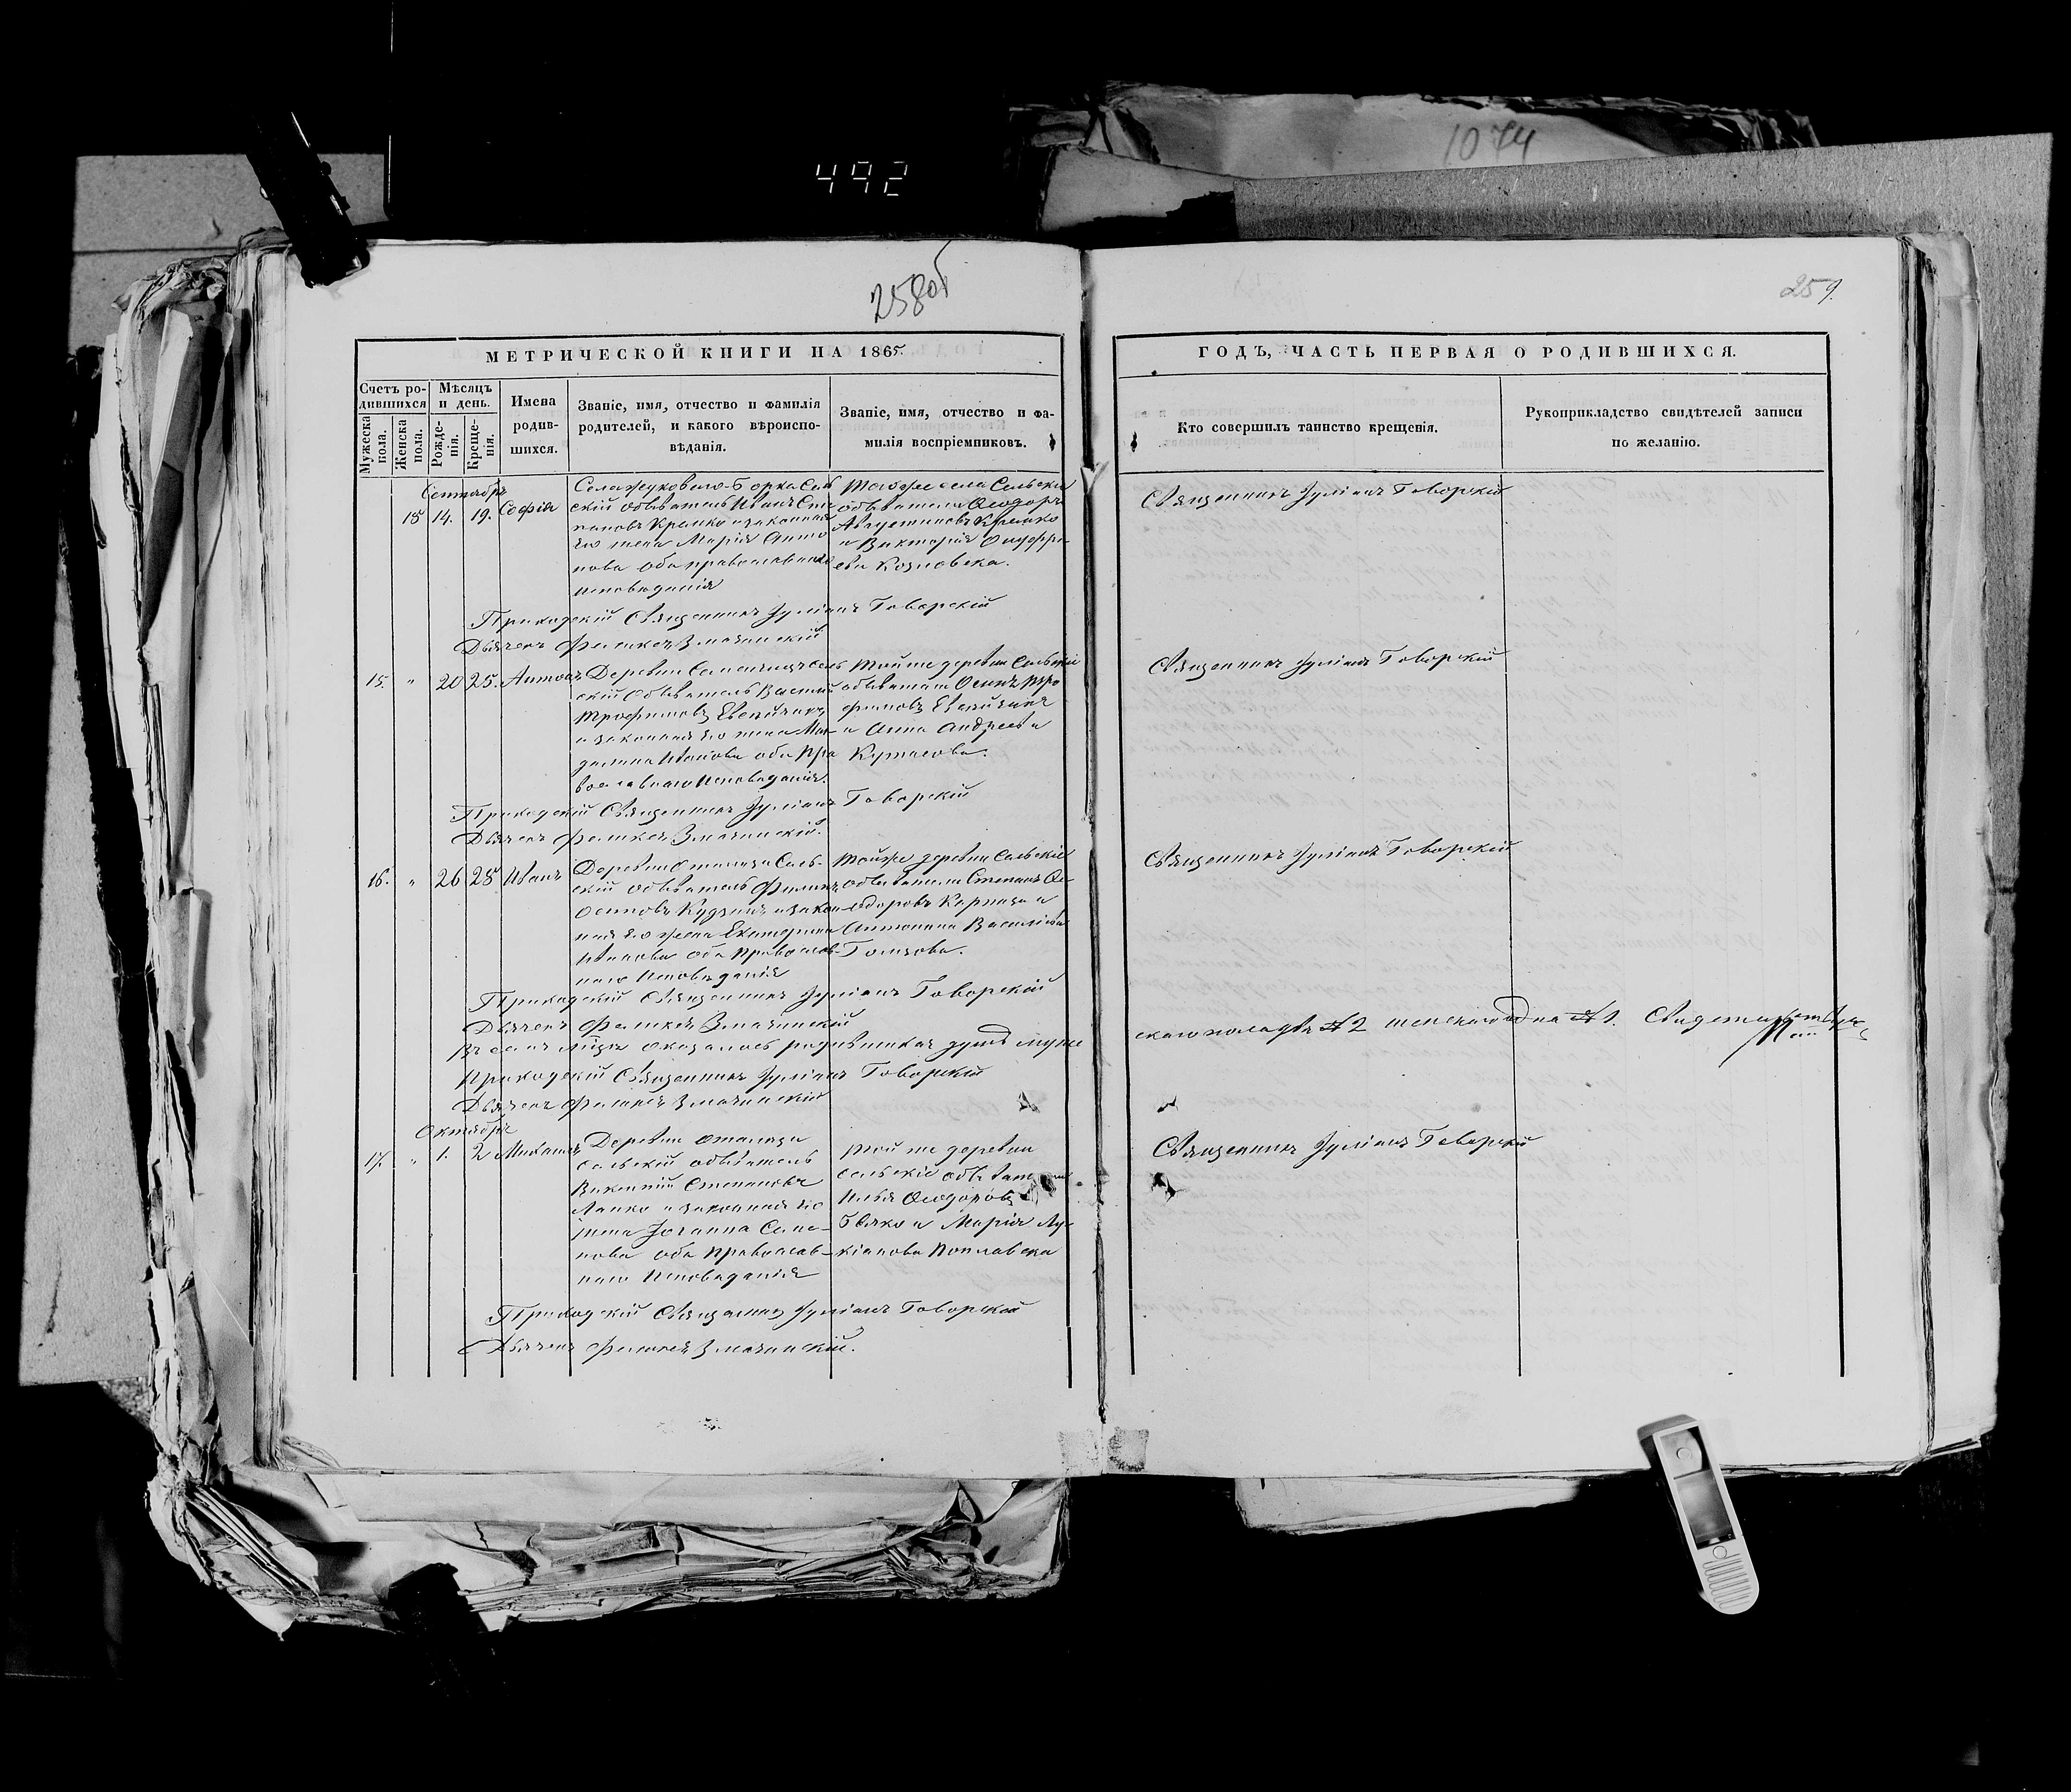 1074
492
258об
259.
МЕТРИЧЕСКОЙ КНИГИ НА 1865.
ГОДЪ, ЧАСТЬ ПЕРВАЯ О РОДИВШИХСЯ.
Счетъ ро-
дившихся
Мужеска
пола.
Женска
пола.
Мѣсяцъ
и день.
Рожде-
нія.
Креще-
нія.
Имена
родив-
шихся.
Званіе, имя, отчество и фамилія
родителей, и какого вѣроиспо-
вѣданія.
Званіе, имя, отчество и фа-
милія воспріемниковъ.
Кто совершилъ таинство крещенія.
Рукоприкладство свидѣтелей записи
по желанію.
Сентябрь
15 14. 19. Софія
Села Жуковаго-Борка Сель
скій обыватель Иванъ Сте
пановъ Крамко и законная
его жена Марія Анто
нова оба православнаго
исповѣданія
Тогоже села Сельскіе
обыватели Ѳеодоръ
Августиновъ Крамко
и Викторія Онуфрі-
ева Козловска.
Священникъ Іуліанъ Говорскій
Приходскій Священникъ Іуліанъ Говорскій
Дьячекъ Змачинскій
15. " 20 25. Антонъ
Деревни сель
скій Обыватель Василій
Трофимовъ
и законная его жена Маг
далина Иванова оба Пра
вославнаго Исповѣданія.
Той же деревни Сельскіе
обыватели Осипъ Тро
фимовъ
и Анна Андреева
Священникъ Іуліанъ Говорскій
Приходскій Священникъ Іуліанъ Говорскій
Дьячекъ Змачинскій.
16. " 26 28 Иванъ
Деревни Отолиза Сель-
скій обыватель
Осиповъ и закон
ная его жена Екатерина
Иванова оба Православ-
наго Исповѣданія
Той же деревни Сельскіе
обыватели Степанъ Ѳе-
одоровъ и
Антонина Васильева
Священникъ Іуліанъ Говорскій
Приходскій Священникъ Іуліанъ Говорскій
Дьячекъ Змачинскій
Въ семъ мѣсяцѣ оказалось родившихся душъ муже
скаго пола два № 2 женскаго одна № 1.
Приходскій Священникъ Іуліанъ Говорскій
Дьячекъ Змачинскій
Октябрь
17. " 1. 2 Михаилъ
Деревни Отолиза
сельскій обыватель
Викентій Степановъ
и законная его
жена Іоганна Семе-
нова оба Православ-
наго Исповѣданія
Той же деревни
сельскіе обыватели
Илья Ѳеодоровъ
и Марія Лу-
кіанова Поплавска
Священникъ Іуліанъ Говорскій
Приходскій Священникъ Іуліанъ Говорскій
Дьячекъ Змачинскій.